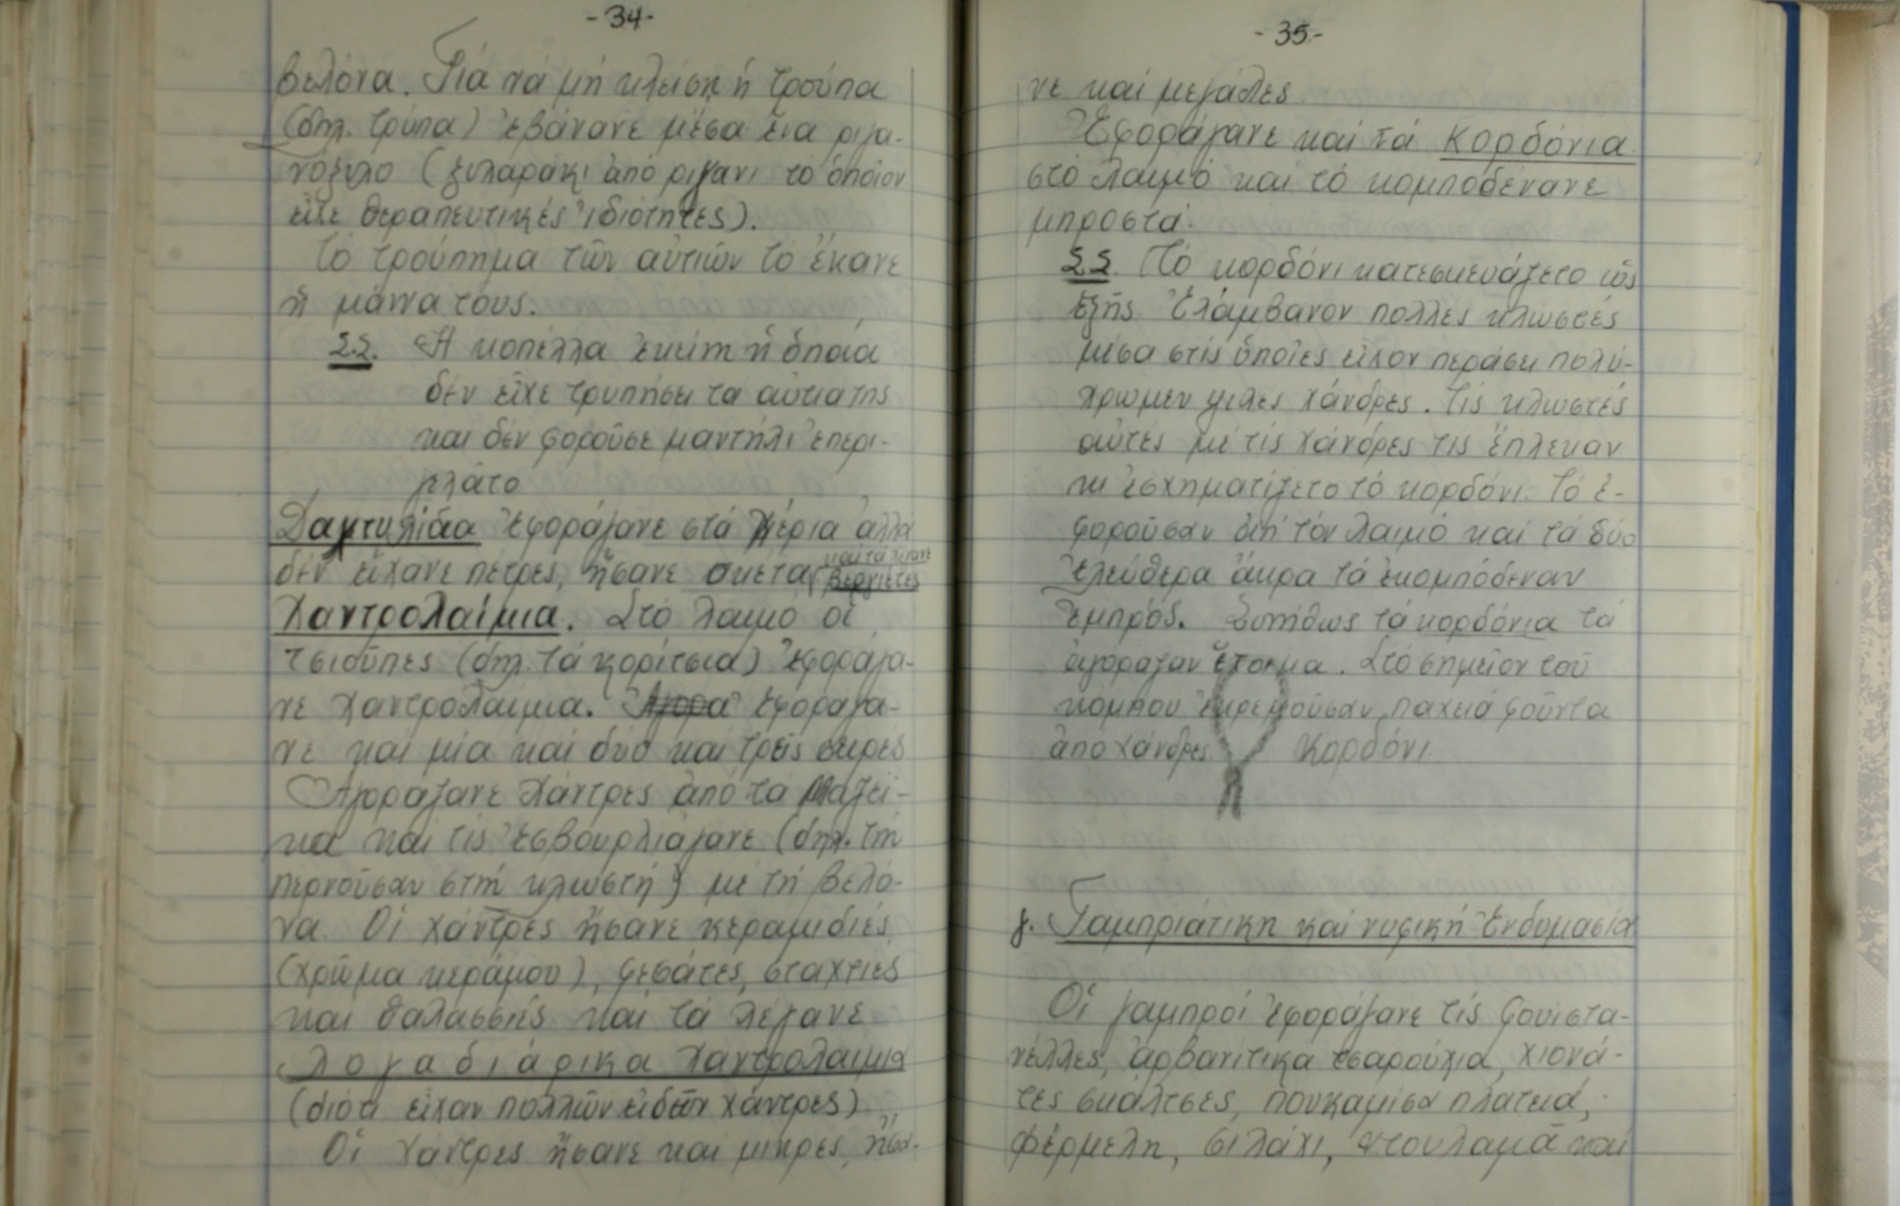 -34-
βελόνα. Γιά νά μή κλείση ἡ τρούπα
(δηλ. τρύπα) ἐβάνανε μέσα ἕνα ριγα-
νόξυλο (ξυλαράκι ἀπό ριγανι τό ὁποῖον
εἶχε θεραπευτικές ἰδιότητες).
Τό τρούπημα τῶν αὐτιῶν τό ἔκανε
ἡ μάννα τους.
Σ.Σ. Ἡ κοπέλλα ἐκείνη ἡ ὁποία
δέν εἶχε τρυπήσει τα αὐτιά της
και δέν φοροῦσε μαντήλι ἐπερι-
γελᾶτο
Δαχτυλίδια ἐφοράγανε στά χέρια ἀλλά
δέν εἴχανε πέτρες, ἤσανε σκετα (και τά λέγανε
βεργέτες
Χαντρολαίμια. Στό λαιμό οἱ
τσιοῦπες (δηλ. τά κορίτσια) ἐφοράγα-
νε χαντρολαίμια. Ἀγορα Ἐφοράγα-
νε και μία και δύο και τρεῖς σειρές
Ἀγοράζανε χάντρες ἀπό τά μαγαζι-
κα και τις ἐσβουρλιάγανε (δηλ. τίς
περνούσαν στήν κλωστή) με τή βελό-
να. Οἱ χάντρες ἤσανε κεραμιδιές,
(χρῶμα κεράμου), φεσάτες, σταχτιές
και θαλασσιές και τά λέγανε
λογαδιάρικα χαντρολαίμια
(διότι εἶχαν πολλῶν εἰδῶν χάντρες)
Οἱ χάντρες ἤσανε και μικρές, ἤσα-
-35-
νε καί μεγάλες.
Ἐφοράγανε καί τά Κορδόνια
στό λαιμό καί τό κομποδένανε
μπροστά.
Σ.Σ. Τό κορδόνι κατεσκευάζετο ὡς
ἑξῆς. Ἐλάμβανον πολλές κλωστές
μέσα στίς ὁποῖες εἶχον περάσει πολύ-
χρωμεν ψιλές χάνδρες. Τίς κλωστές
αὐτές μέ τίς χάνδρες τις ἔπλεκαν
κι ἐσχηματίζετο τό κορδόνι. Τό ἐ-
φοροῦσαν ἐπί τόν λαιμό καί τά δύο
ἐλεύθερα ἄκρα τά ἐκομπόδεναν
ἐμπρός. Συνήθως τά κορδόνια τά
ἀγόραζαν ἕτοιμα. Στό σημεῖον τοῦ
κόμπου ἐκρεμοῦσαν παχειά φοῦντα
ἀπό χάνδρες Κορδόνι
γ. Γαμπριάτικη καί νυφική Ἐνδυμασία
Οἱ γαμπροί ἐφοράγανε τίς φουστα-
νέλλες, ἀρβανίτικα τσαρούχια, χιονά-
τες σκάλτσες, πουκαμίσα πλατειά,
φέρμελη, σιλάχι, ντουλαμᾶ καί